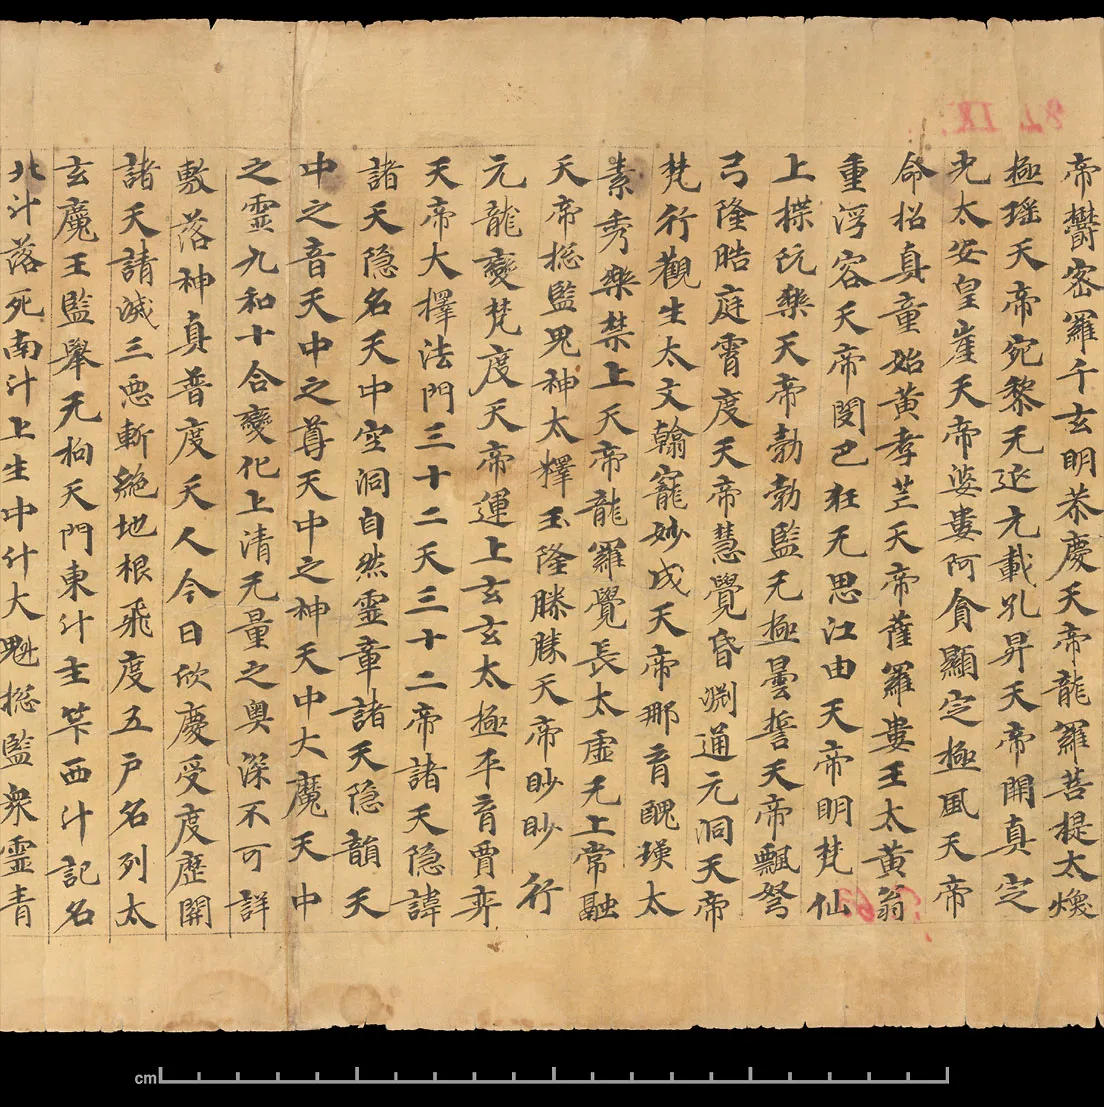 帝欝密羅千玄明恭慶天帝龍羅菩提太煥
極瑶天帝宛黎无延元載孔昇天帝開真定
光太安皇崖天帝婆婁阿貪顯定極風天帝
命招真童始黃孝芒天帝薩羅婁王太黃翁
重浮容天帝閔巴狂无思江由天帝明梵仙
上揲阮樂天帝勃勃監无極曇誓天帝飄弩
弓隆晧庭霄度天帝慧覺昏渊通元洞天帝
梵行觀生太文翰寵妙成天帝那育醜瑛太
素秀樂禁上天帝龍羅覺長太虛无上常融
天帝揔監鬼神太釋玉隆騰勝天帝眇眇行
元龍變梵度天帝運上玄玄太極平育賈弈
天帝大擇法門三十二天三十二帝諸天隐諱
諸天隐名天中空洞自然霊章諸天隐韻天
中之音天中之尊天中之神天中大魔天中
之霊九和十合變化上清无量之奥深不可詳
敷落神真普度天人今日欣慶受度歷關
諸天請滅三惡斬絶地根飛度五户名列太
玄魔王監舉无拘天門東斗主筭西斗記名
北斗落死南斗上生中斗大魁揔監衆霊青
cm